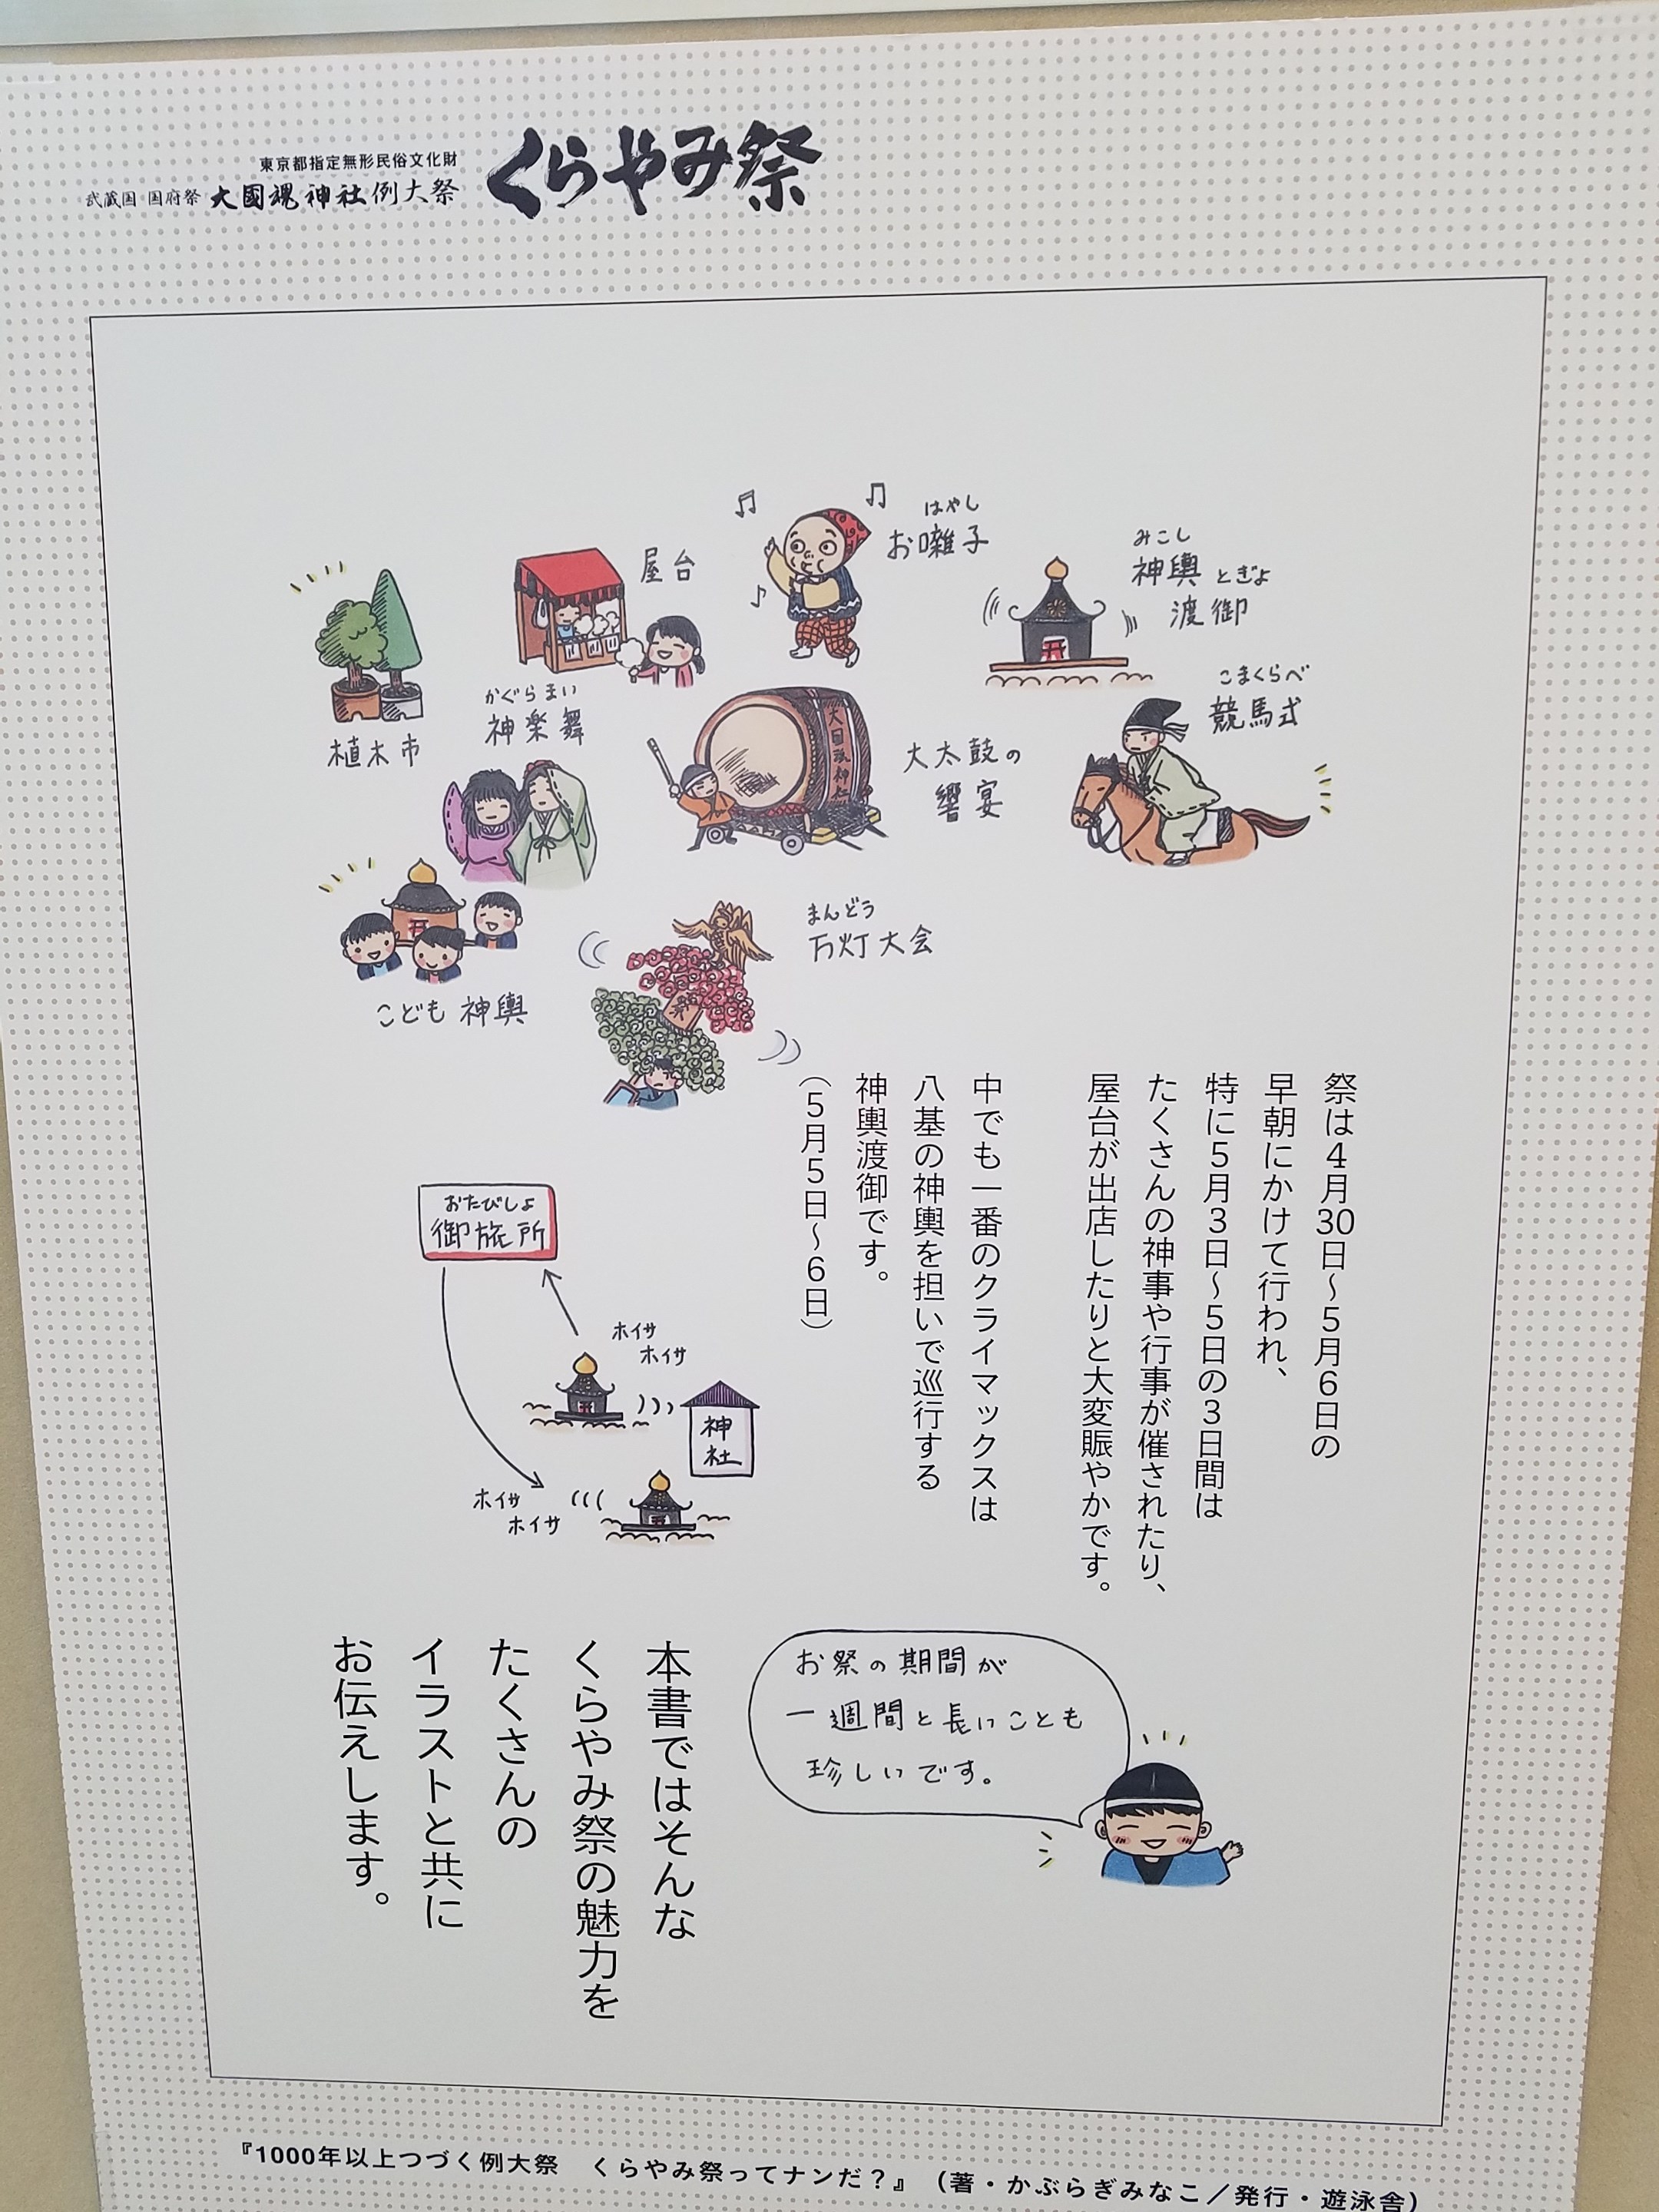 東京都指定無形民俗文化財
武蔵国 国府祭 大國魂神社例大祭
くらやみ祭
みこし
神輿
とぎょ
渡御
はやし
お囃子
屋台
植木市
こまくらべ
競馬式
大太鼓の
響宴
大國魂神社
かぐらまい
神楽舞
まんどう
万灯大会
こども神輿
祭は4月30日〜5月6日の
早朝にかけて行われ、
特に5月3日〜5日の3日間は
たくさんの神事や行事が催されたり、
屋台が出店したりと大変賑やかです。
中でも一番のクライマックスは
八基の神輿を担いで巡行する
神輿渡御です。
（5月5日〜6日）
おたびしょ
御旅所
ホイサ
ホイサ
神
社
ホイサ
ホイサ
お祭の期間が
一週間と長いことも
珍しいです。
本書ではそんな
くらやみ祭の魅力を
たくさんの
イラストと共に
お伝えします。
『1000年以上つづく例大祭　くらやみ祭ってナンだ？』（著・かぶらぎみなこ／発行・遊泳舎）